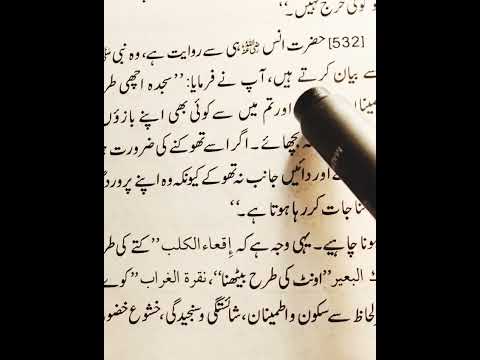 و کوئی حرج نہیں۔"
[532] حضرت انس ؓ ہی سے روایت ہے، وہ نبی
سے بیان کرتے ہیں، آپ نے فرمایا: "سجدہ اچھی طر
اورتم میں سے کوئی بھی اپنے بازوں
بچھائے۔ اگر اسے تھوکنے کی ضرورت ہ
اور دائیں جانب نہ تھوکے کیونکہ وہ اپنے پروردگ
جات کر رہا ہوتا ہے۔"
ہونا چاہیے۔ یہی وجہ ہے کہ إقعاء الكلب "کتے کی طر
البعير "اونٹ کی طرح بیٹھنا"، نقرة الغراب "کوے
لحاظ سے سکون و اطمینان، شائستگی و سنجیدگی، خشوع خضو